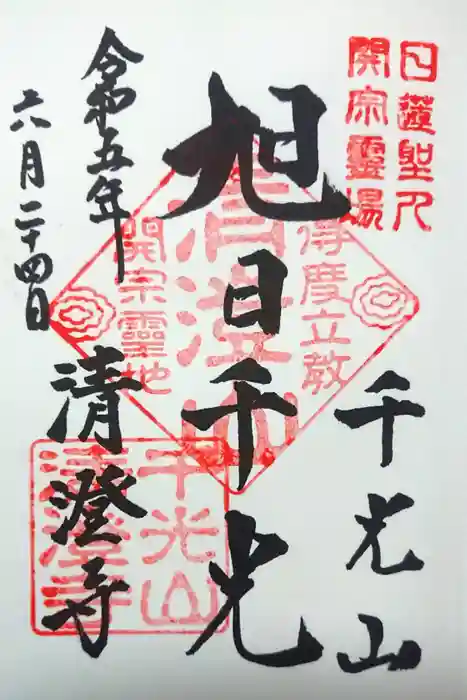 日蓮聖人
開宗霊場
千光山
旭日千光
得度立教
清澄山
開宗霊地
令和五年
六月二十四日
清澄寺
千光山
清澄寺